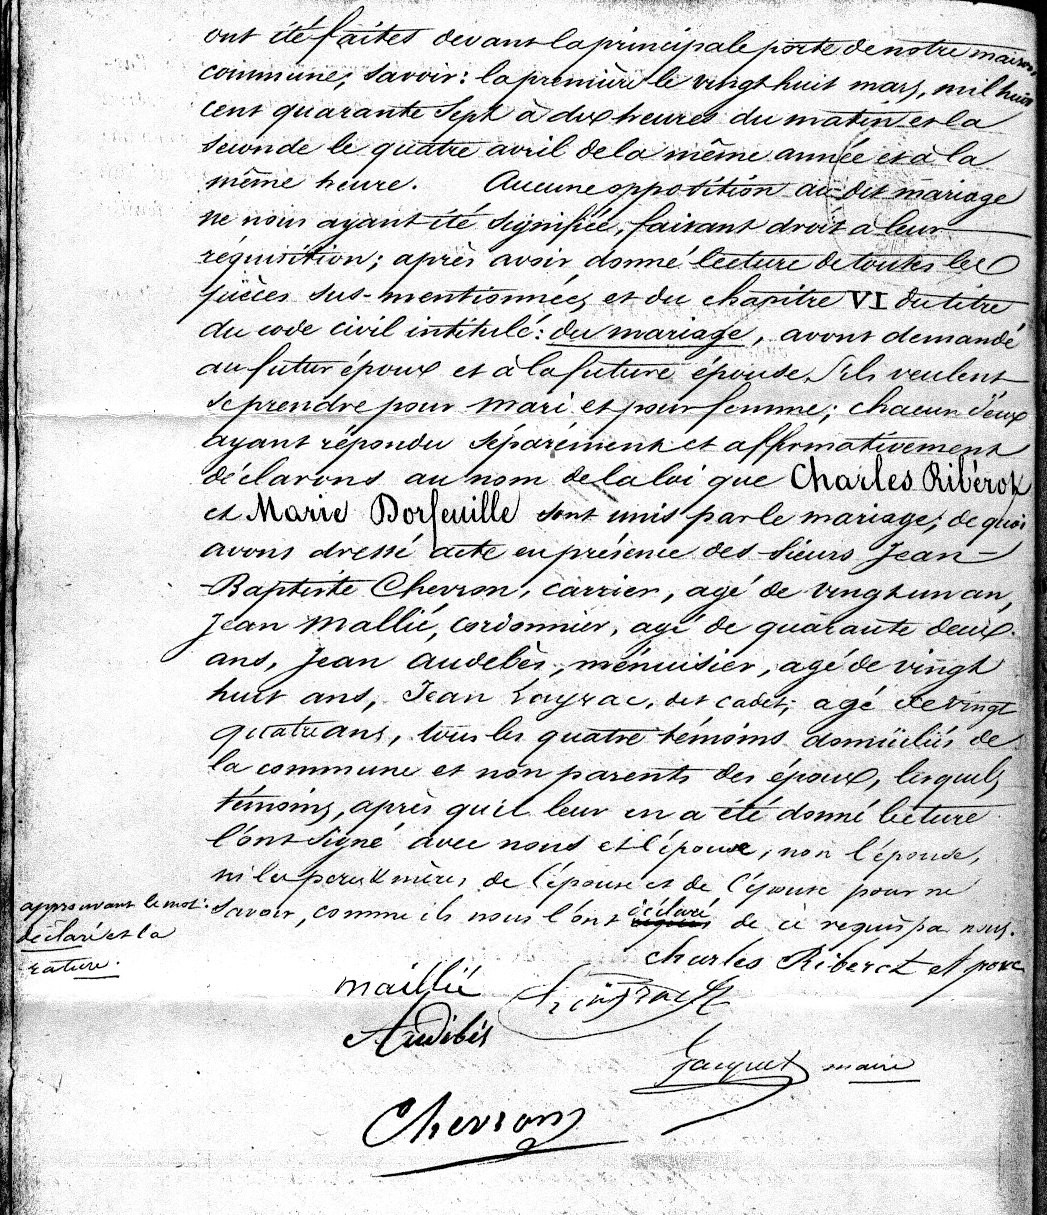 ont été faites devant la principale porte de notre maison
commune, savoir: la première le vingt huit mars, mil huit
cent quarante sept à dix heures du matin et la
seconde le quatre avril de la même année et à la
même heure. Aucune opposition au dit mariage
ne nous ayant été signifiée, faisant droit à leur
réquisition; après avoir donné lecture de toutes les
pièces sus-mentionnées et du chapitre VI du titre
du code civil intitulé: du mariage, avons demandé
au futur époux et à la future épouse s'ils veulent
se prendre pour mari et pour femme; chacun d'eux
ayant répondu séparément et affirmativement
déclarons au nom de la loi que Charles Ribérot
et Marie Dorfeuille sont unis par le mariage; de quoi
avons dressé acte en présence des sieurs Jean-
Baptiste Chevron, carrier, agé de vingt un an,
Jean Mallié, cordonnier, agé de quarante deux
ans, Jean Audebès, menuisier, agé de vingt
huit ans, Jean Layrac, dit cadet, agé de vingt
quatre ans, tous les quatre témoins domiciliés de
la commune et non parents des époux, lesquels
témoins, après qu'il leur en a été donné lecture
l'ont signé avec nous et l'époux, non l'épouse,
ni les pères et mères de l'époux et de l'épouse pour ne
savoir, comme ils nous l'ont déclaré de ce requis pa nous.
approuvant le mot:
déclaré et la
rature.
charles Riberot et poux
Maillié
Audibés
Jacquet maire
Chevron